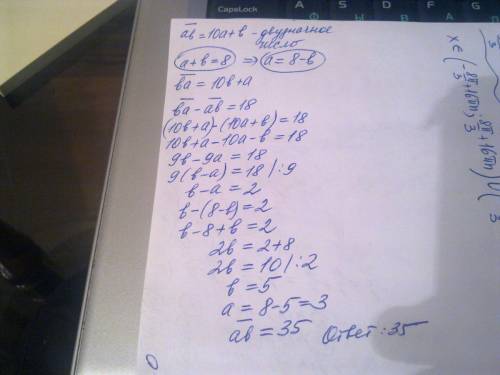 CapsLock
A S D F
Ф Ы
ab = 10a+b - двузначное
число
a+b=8 ⇒ a=8-b
ba = 10b+a
ba - ab = 18
(10b+a)-(10a+b)=18
10b+a-10a-b=18
9b-9a=18
9(b-a)=18 |:9
b-a=2
b-(8-b)=2
b-8+b=2
2b=2+8
2b=10 |:2
b=5
a=8-5=3
ab=35 Ответ: 35